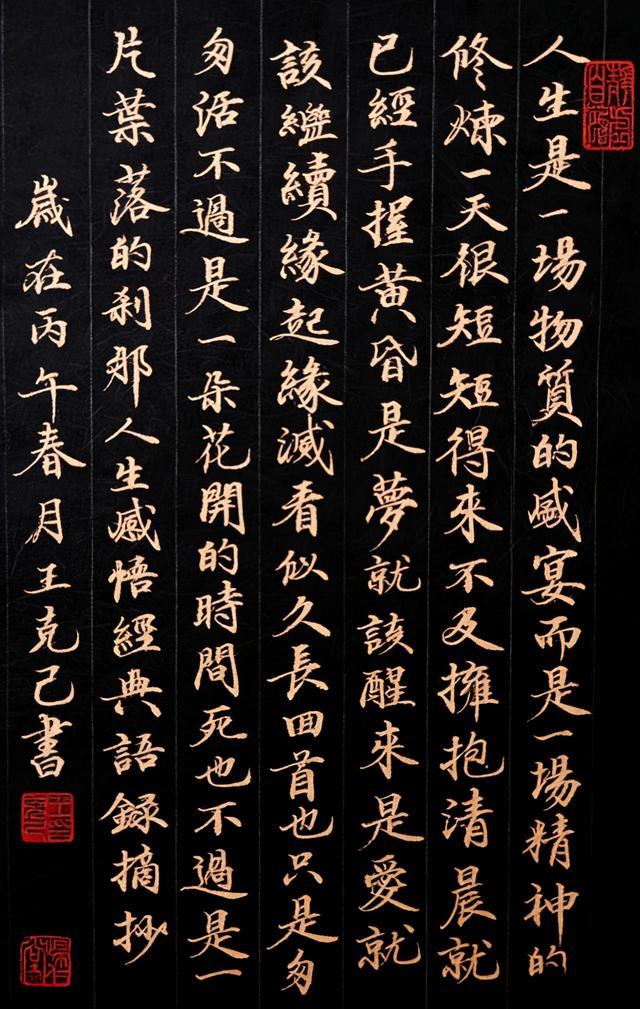 人生是一場物質的盛宴而是一場精神的
修煉一天很短短得來不及擁抱清晨就
已經手握黄昏是夢就該醒來是愛就
該繼續緣起緣滅看似久長回首也只是匆
匆活不過是一朵花開的時間死也不過是一
片葉落的刹那人生感悟經典語録摘抄
歲在丙午春月王克己書